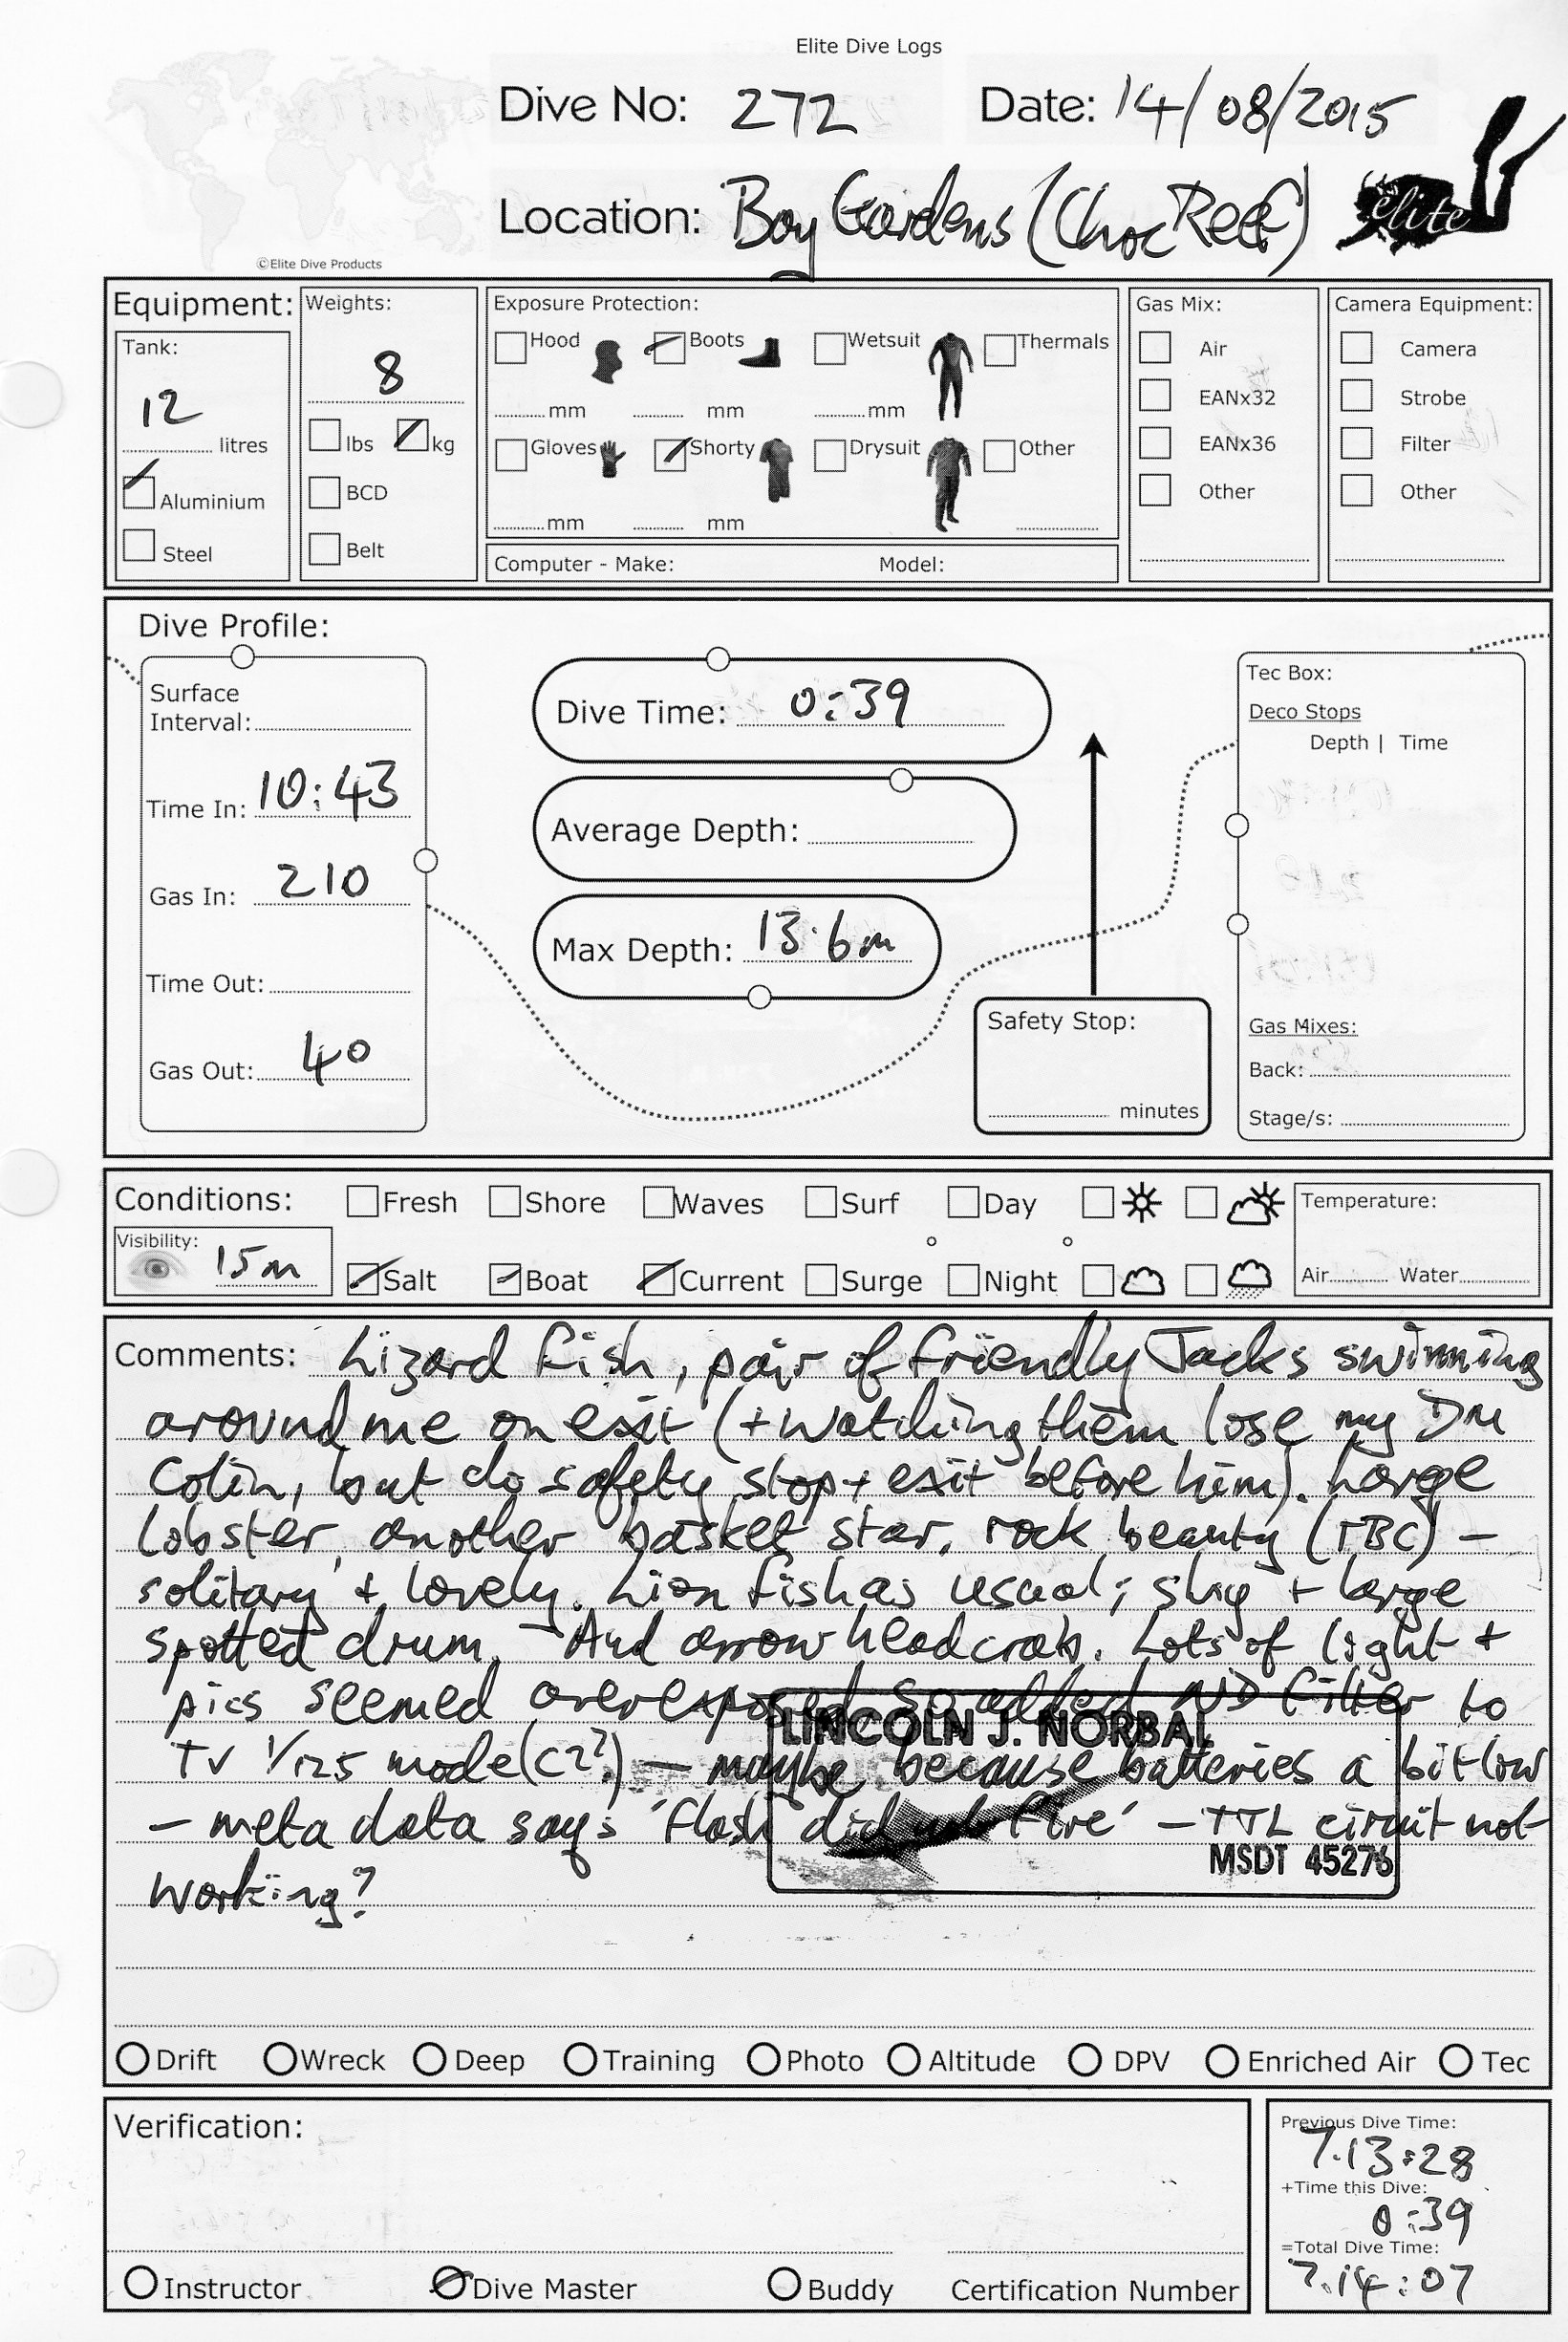 Elite Dive Logs
Dive No: 272 Date: 14/08/2015
Location: Boy Gardens (Choc Reef)
elite
©Elite Dive Products
Equipment:
Tank:
12
litres
Aluminium
Steel
Weights:
8
lbs kg
BCD
Belt
Exposure Protection:
Hood Boots Wetsuit Thermals
mm mm mm
Gloves Shorty Drysuit Other
mm mm
Computer - Make: Model:
Gas Mix:
Air
EANx32
EANx36
Other
Camera Equipment:
Camera
Strobe
Filter
Other
Dive Profile:
Surface
Interval:
Time In: 10:43
Gas In: 210
Time Out:
Gas Out: 40
Dive Time: 0:39
Average Depth:
Max Depth: 13.6m
Safety Stop:
minutes
Tec Box:
Deco Stops
Depth | Time
Gas Mixes:
Back:
Stage/s:
Conditions: Fresh Shore Waves Surf Day
Visibility: 15m
Salt Boat Current Surge Night
Temperature:
Air Water
Comments: Lizard fish, pair of friendly Jacks swimming
around me on exit (+ watching them lose my DM
Colin, but do safety stop + exit before him). Large
lobster, another basket star, rock beauty (TBC) –
solitary + lovely. Lion fish as usual; shy + large
spotted drum. And arrow head crab. Lots of light +
pics seemed overexposed, so added ND filter to
TV 1/125 mode (C2?) – maybe because batteries a bit low
– meta data says 'flash did not fire' – TTL circuit not
working?
LINCOLN J. NORBAL
MSDT 45276
Drift Wreck Deep Training Photo Altitude DPV Enriched Air Tec
Verification:
Instructor Dive Master Buddy Certification Number
Previous Dive Time:
7.13:28
+Time this Dive:
0:39
=Total Dive Time:
7.14:07